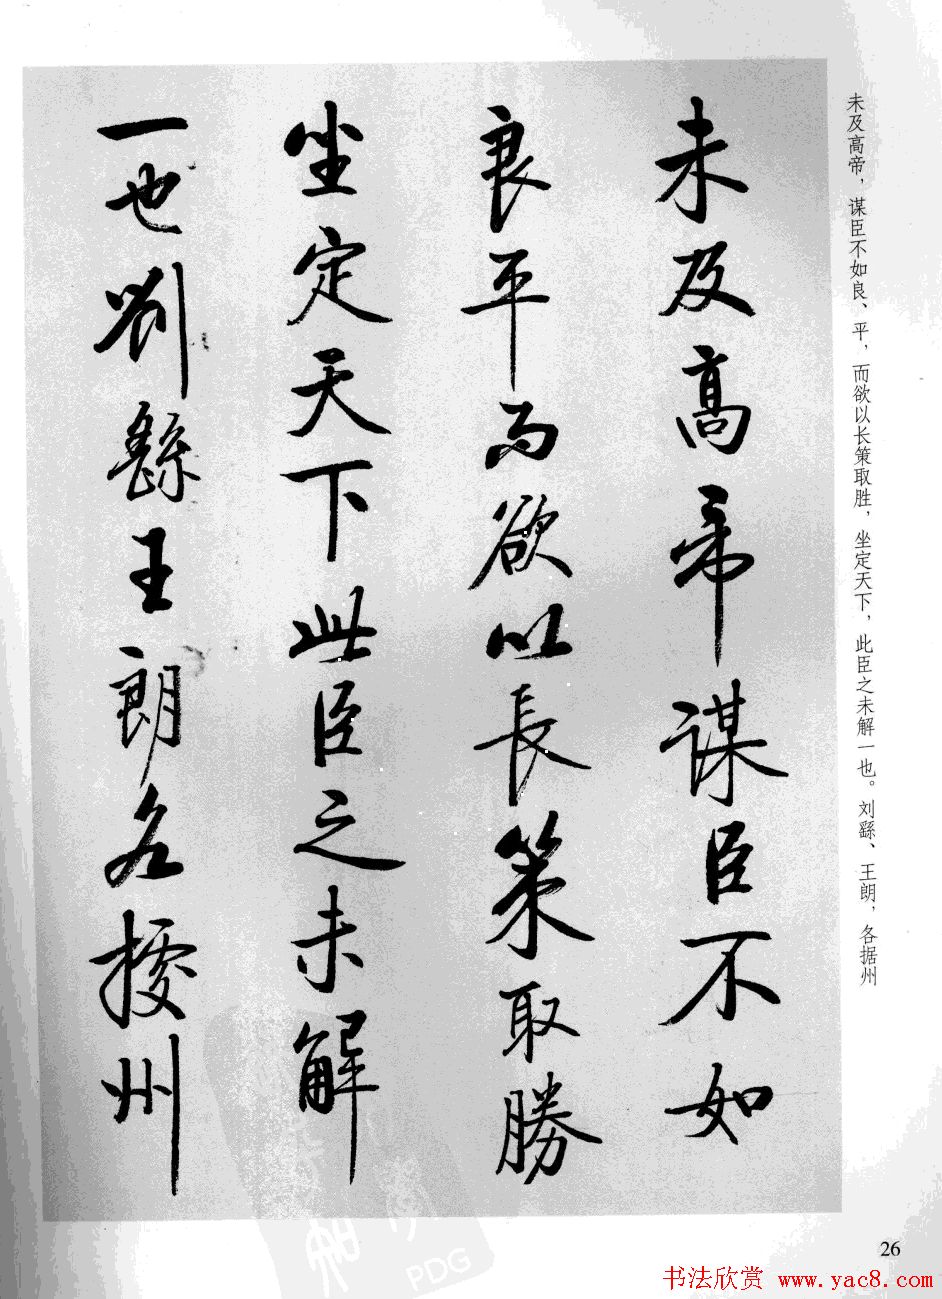 未及高帝谋臣不如
良平而欲以長策取勝
坐定天下此臣之未解
一也劉繇王朗各據州
未及高帝，谋臣不如良、平，而欲以长策取胜，坐定天下，此臣之未解一也。刘繇、王朗，各据州
26
书法欣赏 www.yac8.com
PDG